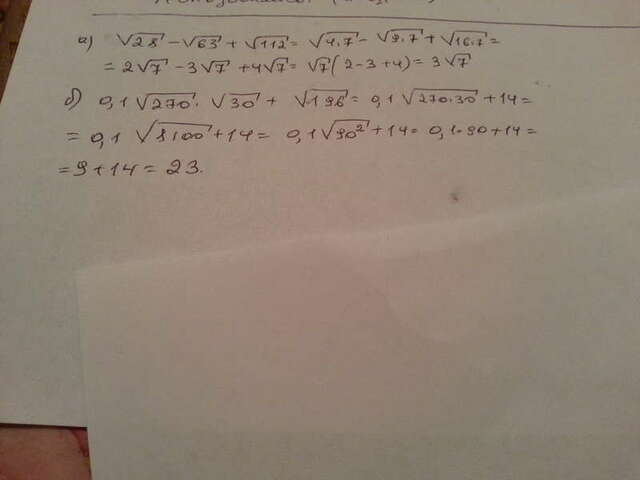 а) √28 - √63 + √112 = √4.7 - √9.7 + √16.7 =
= 2√7 - 3√7 + 4√7 = √7(2-3+4) = 3√7
б) 0,1√270 · √30 + √196 = 0,1√270·30 + 14 =
= 0,1√8100 + 14 = 0,1√90² + 14 = 0,1·90 + 14 =
= 9 + 14 = 23.